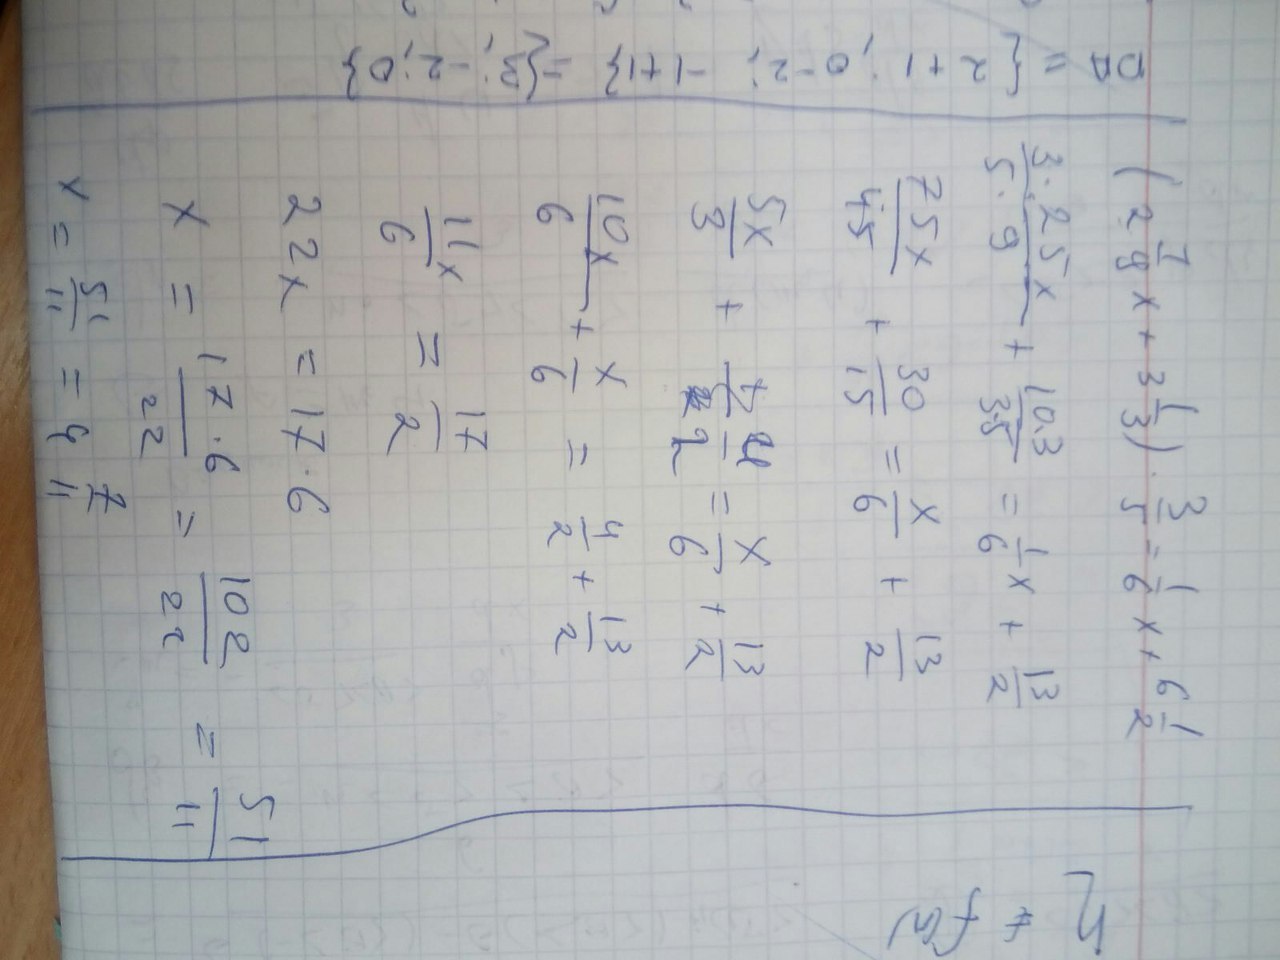 (2 7/9 x + 3 1/3) · 3/5 = 1/6 x + 6 1/2
3·25x/5·9 + 10·3/3·5 = 1/6 x + 13/2
75x/45 + 30/15 = x/6 + 13/2
5x/3 + 4/2 = x/6 + 13/2
10x/6 + x/6 = 4/2 + 13/2
11x/6 = 17/2
22x = 17·6
x = 17·6/22 = 102/22 = 51/11
x = 51/11 = 4 7/11
= {2+1; 0-2; -1+1} = {3; -2; 0}